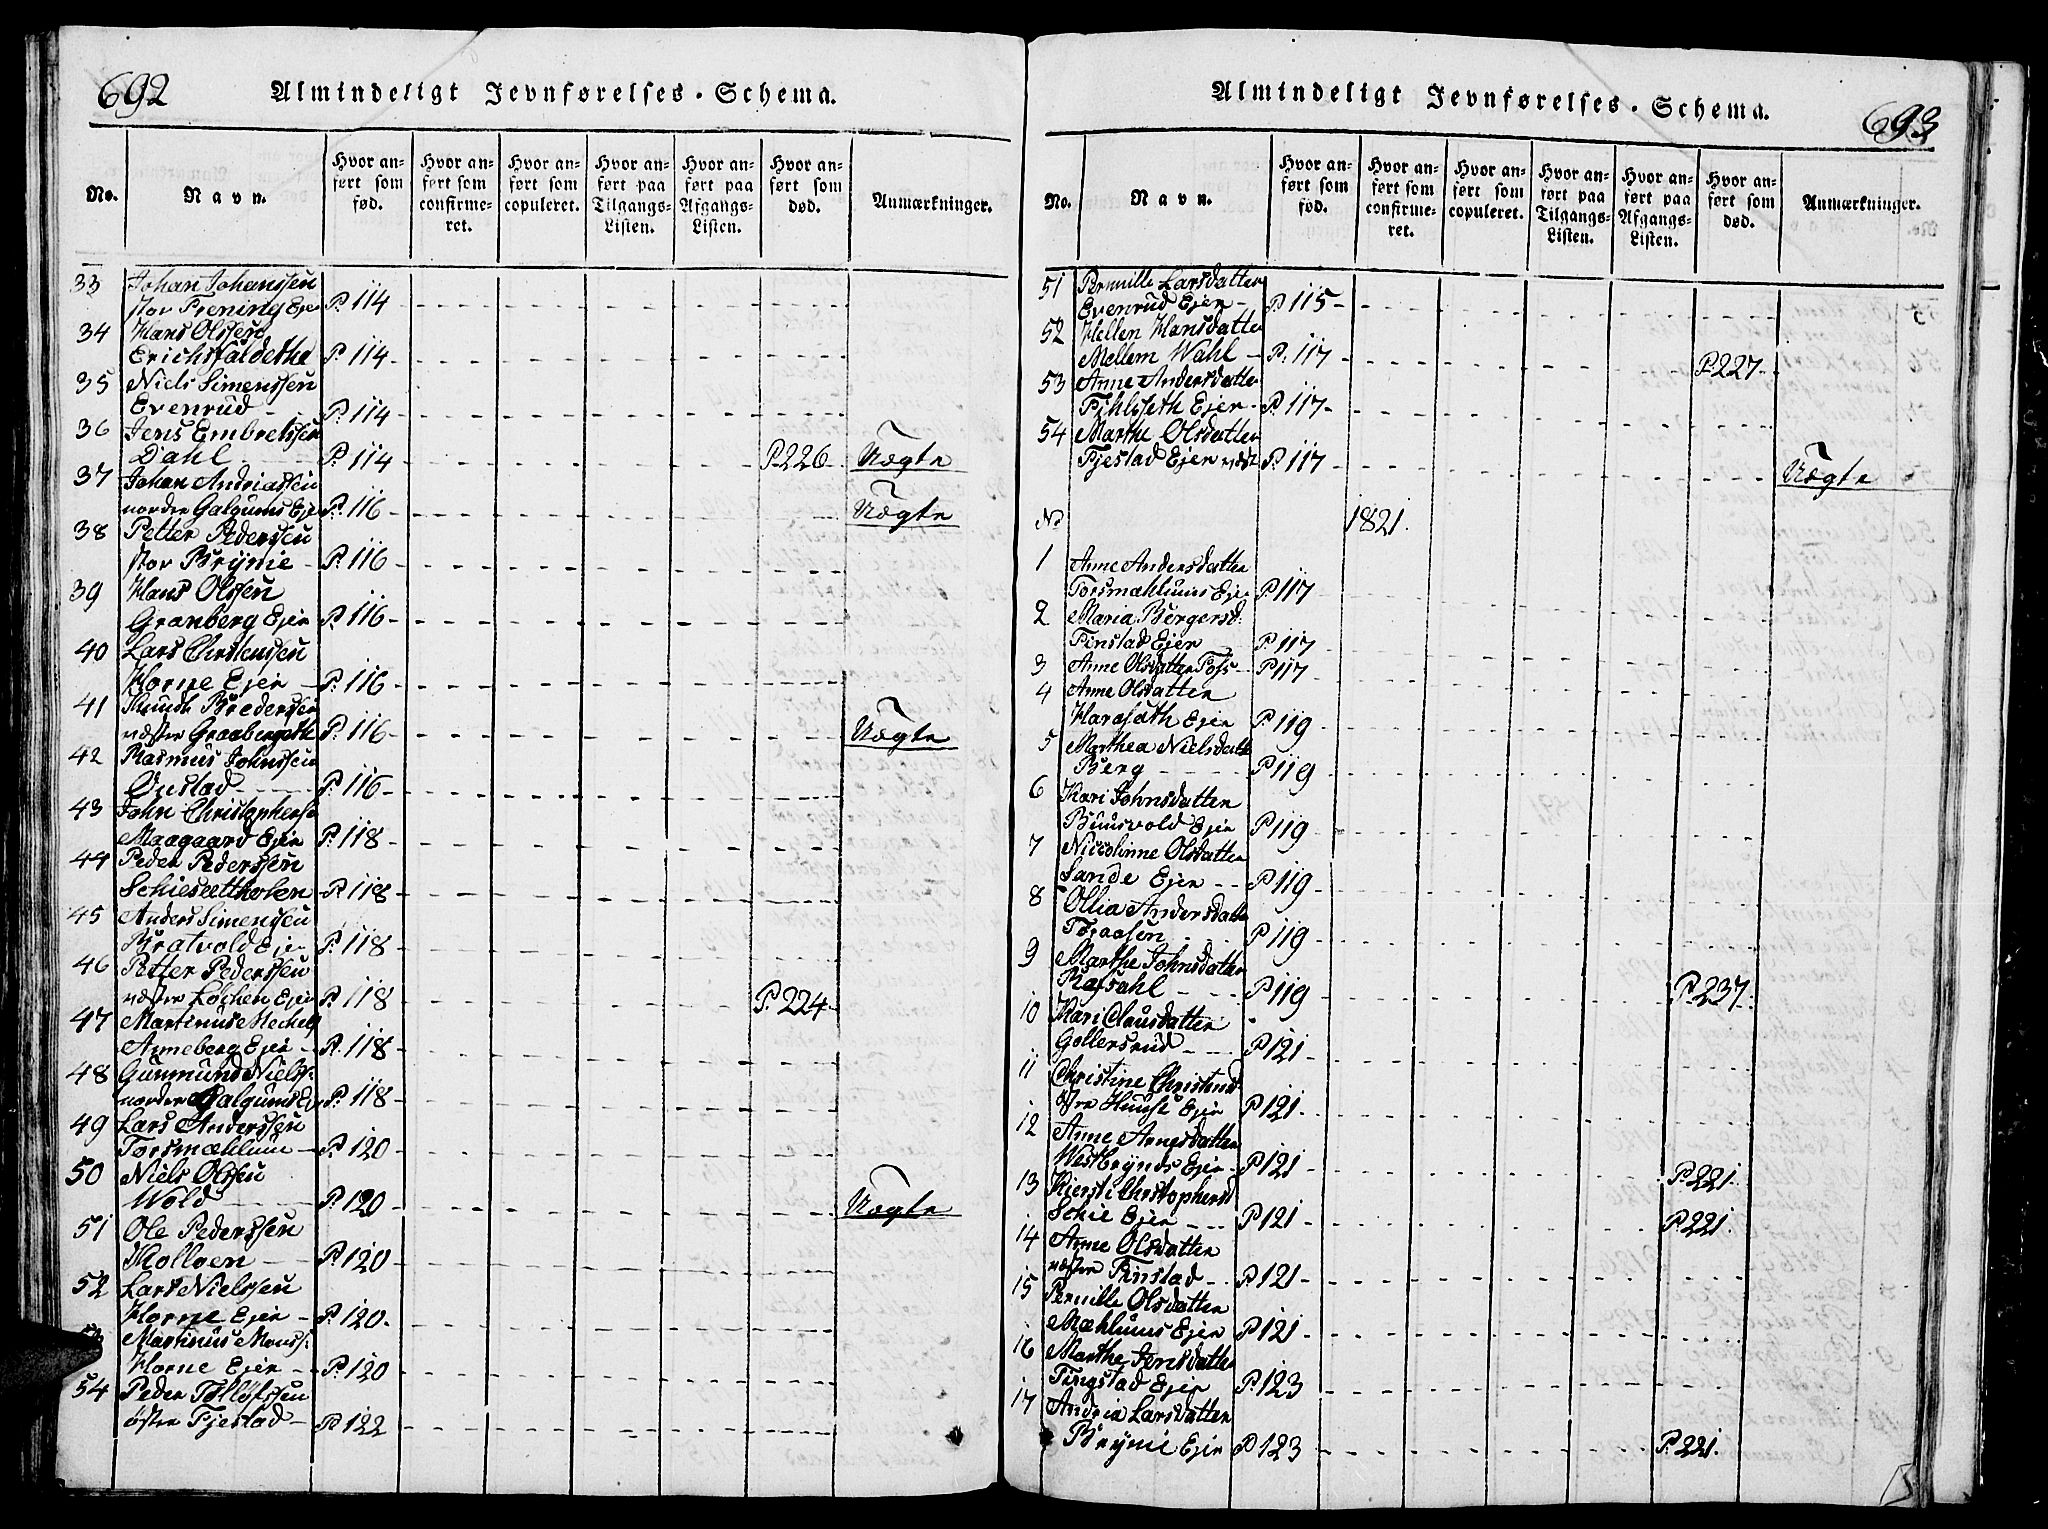 692
Almindeligt Jevnførelses-Schema.
No.
Navn.
Hvor anført som fød.
Hvor anført som confirmeret.
Hvor anført som copuleret.
Hvor anført paa Tilgangs-Listen.
Hvor anført paa Afgangs-Listen.
Hvor anført som død.
Anmærkninger.
33 Johan Johanssen
stor Frening Ejer P. 114
34 Hans Olssen
P. 114
35 Niels Simenssen
Evenrud P. 114
36 Jens Embretssen
Dahl P. 114 P. 226 Uægte
37 Johan Andriassen
nordre Galgums Eje P. 116 Uægte
38 Petter Pederssen
stor Brynie P. 116
39 Hans Olssen
Granberg Ejer P. 116
40 Lars Christenssen
Horne Ejer P. 116
41 Knudt Brederssen
væstre P. 116 Uægte
42 Rasmus Johnssen
Onstad P. 116
43 John Christophers:
Maagaard Ejer P. 118
44 Peder Pederssen
P. 118
45 Anders Simenssen
Bratvold Ejer P. 118
46 Petter Pederssen
væstre Løchen Ejer P. 118 P. 224
47 Martinus
Anneberg Ejer P. 118
48 Gunmund Nielss:
nordre Galgums E P. 118
49 Lars Anderssen
Torsmæhlum P. 120
50 Niels Olssen
Wold P. 120 Uægte
51 Ole Pederssen
Molloen P. 120
52 Lars Nielssen
Horne Ejer P. 120
Martinus Monss:
Horne Ejer P. 120
54 Peder
østre Fjestad P. 122
Almindeligt Jevnførelses-Schema.
693
No.
Navn.
Hvor anført som fød.
Hvor anført som confirmeret.
Hvor anført som copuleret.
Hvor anført paa Tilgangs-Listen.
Hvor anført paa Afgangs-Listen.
Hvor anført som død.
Anmærkninger.
51 Pernille Larsdatter
Evenrud Ejer P. 115
52 Hellen Hansdatter
Mellem Wahl P. 117 P. 227
53 Anne Andersdatter
Ejer P. 117
54 Marthe Olsdatter
Fjestad Ejer væst P. 117 Uægte
No 1821.
1 Anne Andersdatter
Torsmæhlums Ejer P. 117
2 Maria Bergersd:
Finstad Ejer P. 117
3 Anne Olsdatter P. 117
4 Anne Olsdatter
Harasæth Ejer P. 119
5 Marthea Nielsdatt
Berg P. 119
6 Kari Johnsdatter
Buusvold Ejer P. 119
7 Niccolinne Olsdatter
Sande Ejer P. 119
8 Ollia Andersdatter
P. 119
9 Marthe Johnsdatter
P. 119 P. 237
10 Kari Clausdatter
Gollersrud P. 121
11 Christine Christensd
Ejer P. 121
12 Anne Arnesdatter
Ejer P. 121 P. 221
13 Kiersti Christophersd
Schie Ejer P. 121 P. 221
14 Anne Olsdatter
væstre Finstad P. 121
15 Pernille Olsdatter
Mæhlums Ejer P. 121
16 Marthe Jensdatter
Tingstad Ejer P. 123
17 Andria Larsdatter
Brynie Ejer P. 123 P. 221